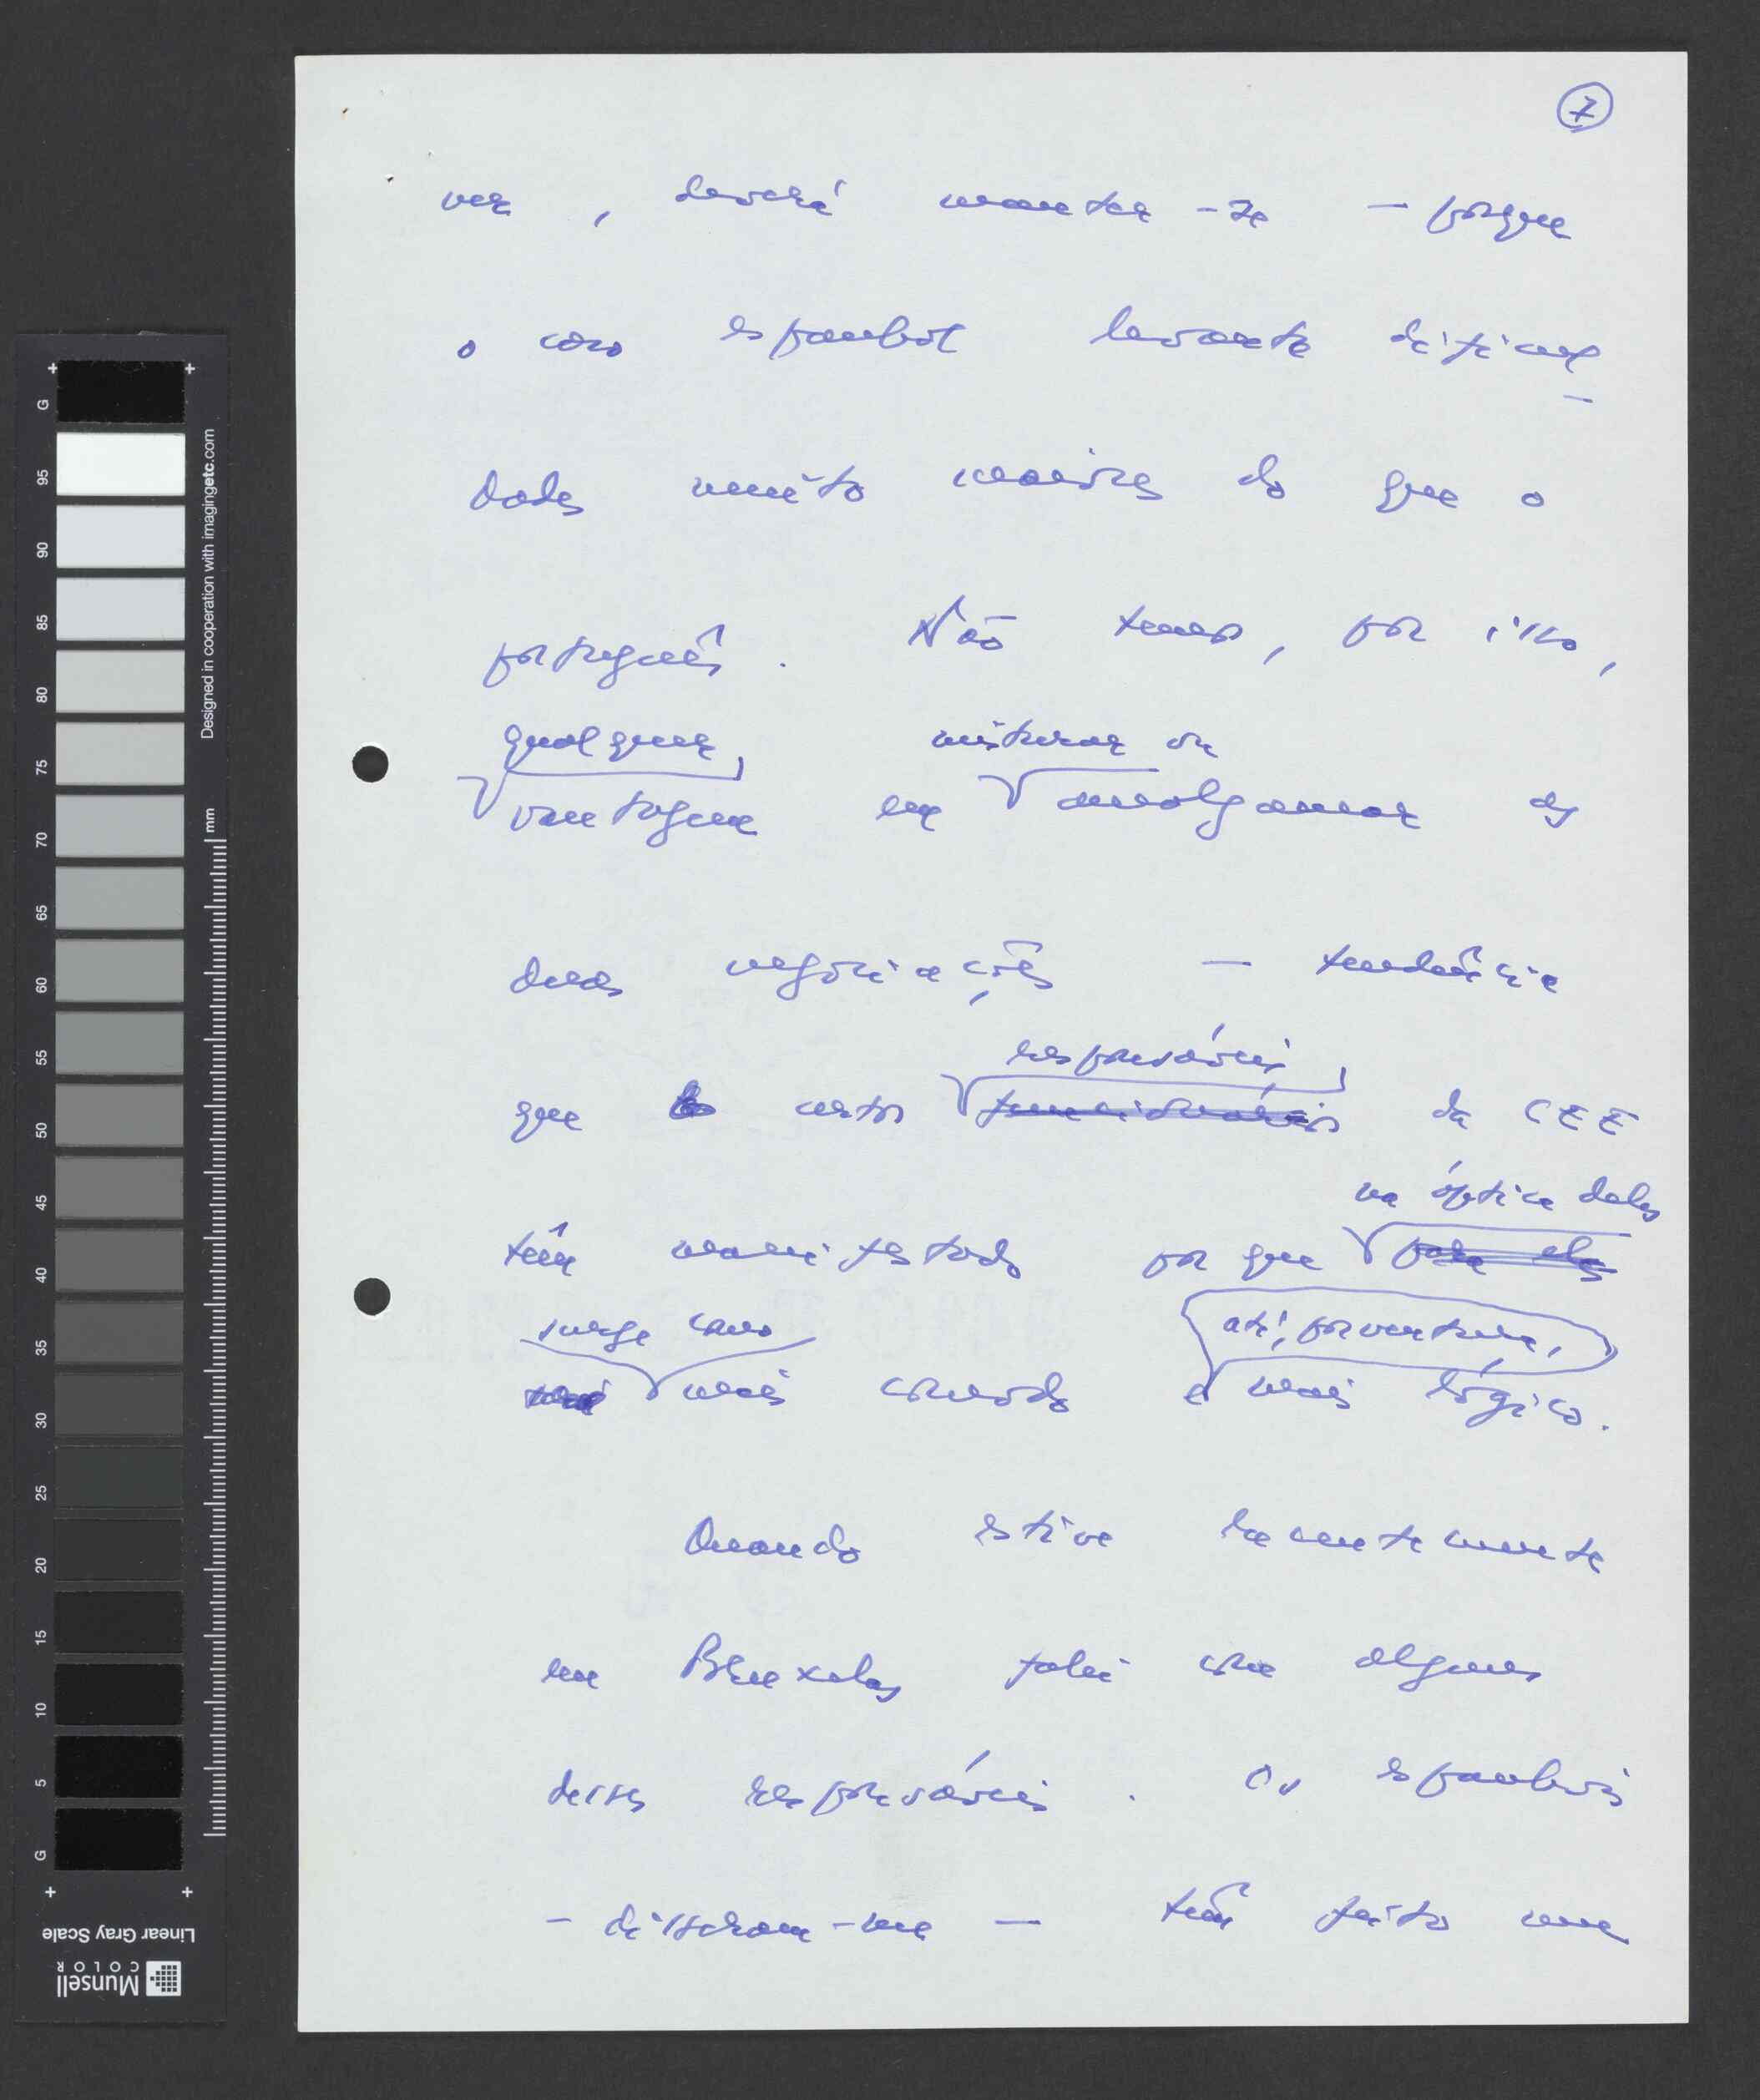 7
ver, deverá manter-se — porque
o caso espanhol levanta dificul-
dades muito maiores do que o
português. Não temos, por isso,
qualquer, misturar ou
vantagem em amalgamar as
duas negociações — tendência
responsáveis
que certos funcionários da CEE
na óptica deles
têm manifestado porque para eles
surge como até, porventura,
mais cómodo e mais lógico.
Quando estive recentemente
em Bruxelas falei com alguns
desses responsáveis. Os espanhóis
– disseram-me — têm feito uma
G 95 90 85 80 75 70 65 60 55 50 45 40 35 30 25 20 15 10 5 G
Designed in cooperation with imagingetc.com
mm
Linear Gray Scale
Munsell
COLOR